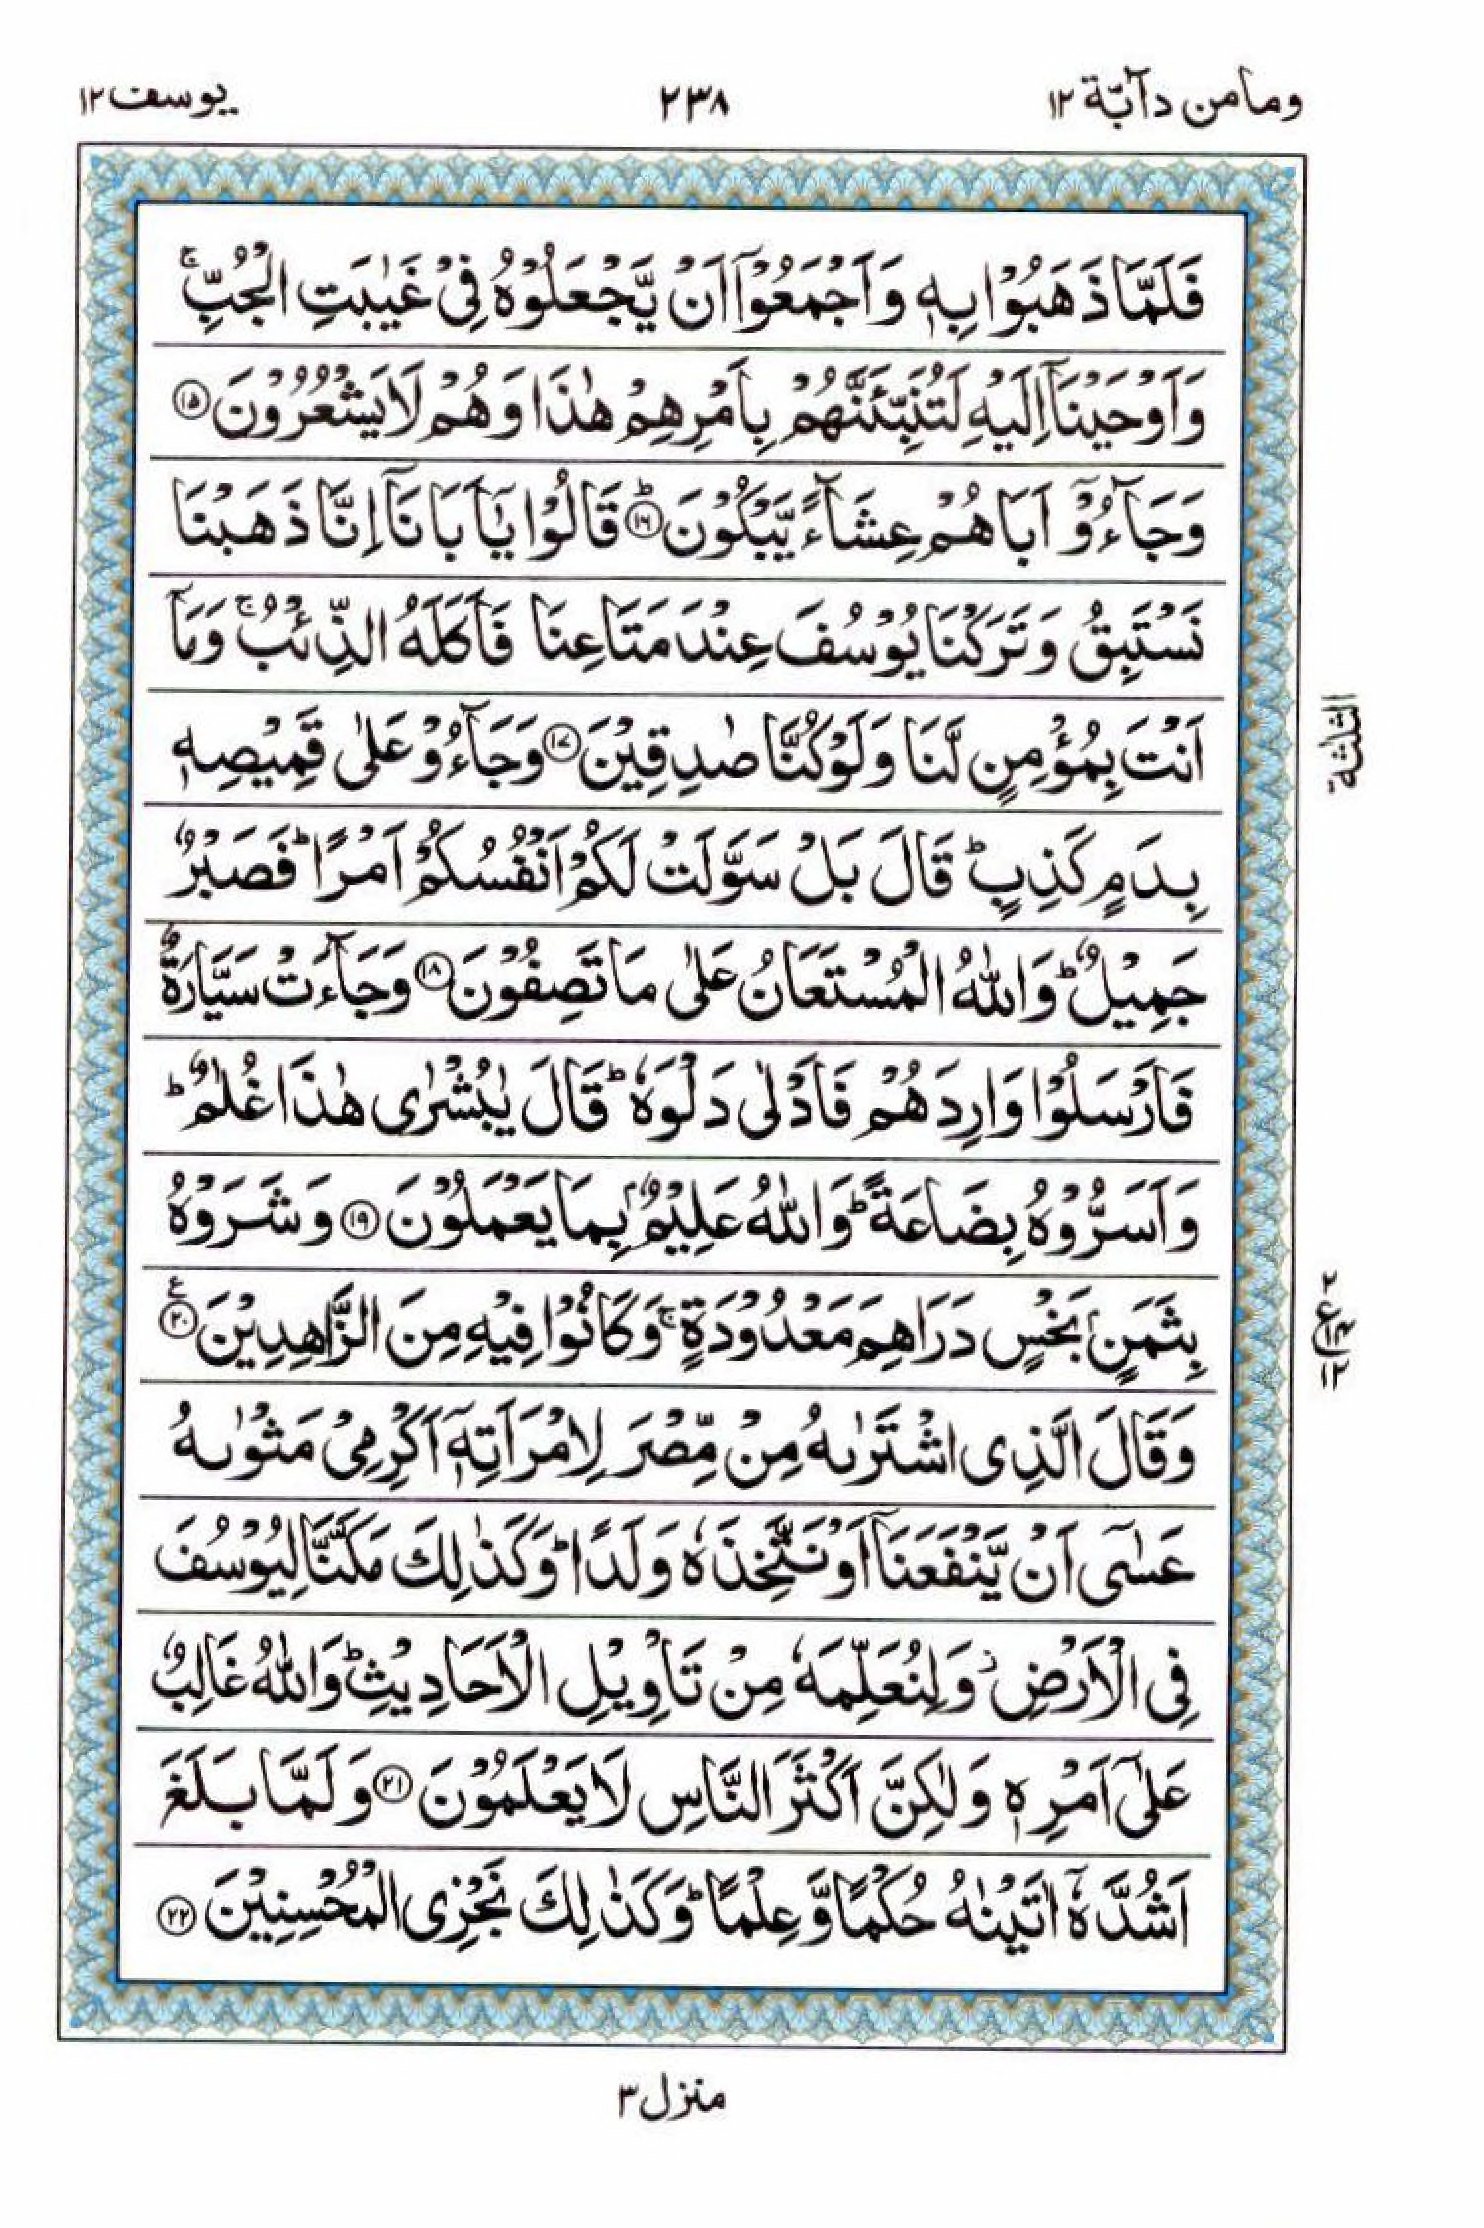 وما من دآبّة ١٢ ٢٣٨ یوسف ١٢
فَلَمَّا ذَهَبُوْا بِهٖ وَاَجْمَعُوْۤا اَنْ يَّجْعَلُوْهُ فِیْ غَيٰبَتِ الْجُبِّ ۚ
وَاَوْحَيْنَاۤ اِلَيْهِ لَتُنَبِّئَنَّهُمْ بِاَمْرِهِمْ هٰذَا وَهُمْ لَا يَشْعُرُوْنَ ﴿۱۵﴾
وَجَآءُوْۤ اَبَاهُمْ عِشَآءً يَّبْكُوْنَ ؕ﴿۱۶﴾ قَالُوْا يٰۤاَبَانَاۤ اِنَّا ذَهَبْنَا
نَسْتَبِقُ وَتَرَكْنَا يُوْسُفَ عِنْدَ مَتَاعِنَا فَاَكَلَهُ الذِّئْبُ ۚ وَمَاۤ
اَنْتَ بِمُؤْمِنٍ لَّنَا وَلَوْ كُنَّا صٰدِقِيْنَ ﴿۱۷﴾ وَجَآءُوْ عَلٰى قَمِيْصِهٖ
بِدَمٍ كَذِبٍ ؕ قَالَ بَلْ سَوَّلَتْ لَكُمْ اَنْفُسُكُمْ اَمْرًا ؕ فَصَبْرٌ
جَمِيْلٌ ؕ وَاللّٰهُ الْمُسْتَعَانُ عَلٰى مَا تَصِفُوْنَ ﴿۱۸﴾ وَجَآءَتْ سَيَّارَةٌ
فَاَرْسَلُوْا وَارِدَهُمْ فَاَدْلٰى دَلْوَهٗ ؕ قَالَ يٰبُشْرٰى هٰذَا غُلٰمٌ ؕ
وَاَسَرُّوْهُ بِضَاعَةً ؕ وَاللّٰهُ عَلِيْمٌۢ بِمَا يَعْمَلُوْنَ ﴿۱۹﴾ وَشَرَوْهُ
بِثَمَنٍۭ بَخْسٍ دَرَاهِمَ مَعْدُوْدَةٍ ۚ وَكَانُوْا فِيْهِ مِنَ الزَّاهِدِيْنَ ﴿۲۰﴾ ع
وَقَالَ الَّذِی اشْتَرٰىهُ مِنْ مِّصْرَ لِامْرَاَتِهٖۤ اَكْرِمِیْ مَثْوٰىهُ
عَسٰۤى اَنْ يَّنْفَعَنَاۤ اَوْ نَتَّخِذَهٗ وَلَدًا ؕ وَكَذٰلِكَ مَكَّنَّا لِيُوْسُفَ
فِی الْاَرْضِ ؗ وَلِنُعَلِّمَهٗ مِنْ تَاْوِيْلِ الْاَحَادِيْثِ ؕ وَاللّٰهُ غَالِبٌ
عَلٰۤى اَمْرِهٖ وَلٰكِنَّ اَكْثَرَ النَّاسِ لَا يَعْلَمُوْنَ ﴿۲۱﴾ وَلَمَّا بَلَغَ
اَشُدَّهٗۤ اٰتَيْنٰهُ حُكْمًا وَّعِلْمًا ؕ وَكَذٰلِكَ نَجْزِی الْمُحْسِنِيْنَ ﴿۲۲﴾
الثلثة
٢
ع
١٤
١٢
منزل ٣